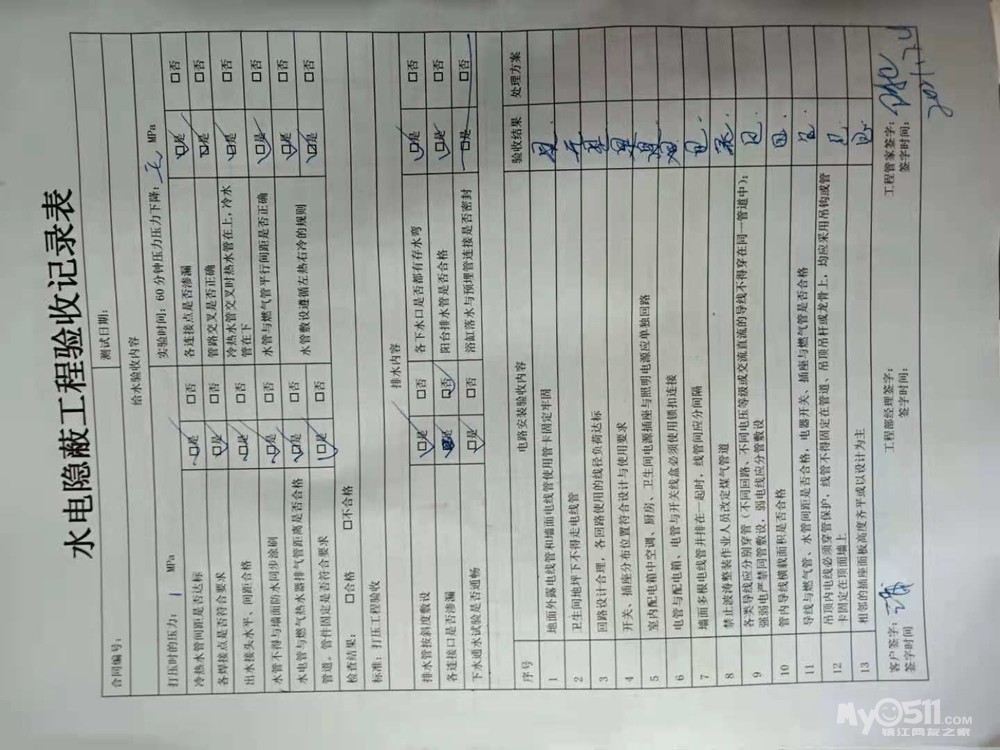 水电隐蔽工程验收记录表
合同编号： 测试日期：
给水验收内容
打压时的压力： 1 MPa 实验时间：60分钟压力压力下降： 无 MPa
冷热水管间距是否达标 ☑是 □否 各连接点是否渗漏 ☑是 □否
各焊接点是否符合要求 ☑是 □否 管路交叉是否正确 ☑是 □否
出水接头水平、间距合格 ☑是 □否 冷热水管交叉时热水管在上，冷水管在下 ☑是 □否
水管不得与墙面防水同步涂刷 ☑是 □否 水管与燃气管平行间距是否正确 ☑是 □否
水电管与燃气热水器排气管距离是否合格 ☑是 □否 水管敷设遵循左热右冷的规则 ☑是 □否
管道。管件固定是否符合要求 ☑是 □否 ☑是 □否
检查结果： □合格 □不合格
标准：打压工程验收
排水内容
排水管按斜度敷设 ☑是 □否 各下水口是否都有存水弯 ☑是 □否
各连接口是否渗漏 是 ☑否 阳台排水管是否合格 ☑是 □否
下水通水试验是否通畅 ☑是 □否 浴缸落水与预埋管连接是否密封 □是 □否
序号 电路安装验收内容 验收结果 处理方案
1 地面外露电线管和墙面电线管使用管卡固定牢固 是
2 卫生间地坪下不得走电线管
3 回路设计合理，各回路使用的线径负荷达标 是
4 开关、插座分布位置符合设计与使用要求 是
5 室内配电箱中空调、厨房、卫生间电源插座与照明电源应单独回路 是
6 电管与配电箱、电管与开关线盒必须使用锁扣连接 是
7 墙面多根电线管并排在一起时，线管间应分间隔 是
8 禁止波涛整装作业人员改定煤气管道
9 各类导线应分别穿管（不同回路、不同电压等级或交流直流的导线不得穿在同一管道中）；
强弱电严禁同管敷设，弱电线应分管敷设 是
10 管内导线横截面积是否合格 是
11 导线与燃气管、水管间距是否合格，电器开关、插座与燃气管是否合格 是
12 吊顶内电线必须穿管保护，线管不得固定在管道、吊顶吊杆或龙骨上，均应采用吊钩或管
卡固定在顶面墙上 是
13 相邻的插座面板高度齐平或以设计为主 是
客户签字： 工程部经理签字： 工程管家签字：
签字时间 签字时间： 签字时间：
My0511.COM
镇江网友之家